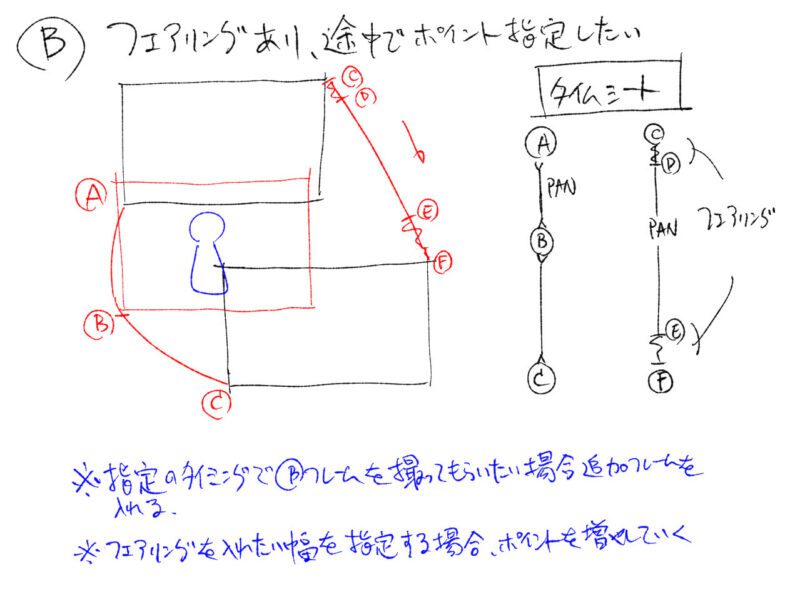 Ⓑ フェアリングあり、途中でポイント指定したい
タイムシート
Ⓐ
Ⓑ
Ⓒ
Ⓒ
Ⓓ
Ⓔ
Ⓕ
Ⓐ
PAN
Ⓑ
Ⓒ
Ⓒ
Ⓓ
PAN
フェアリング
Ⓔ
Ⓕ
※指定のタイミングでⒷフレームを撮ってもらいたい場合追加フレームを
入れる.
※フェアリングを入れたい幅を指定する場合、ポイントを増やしていく